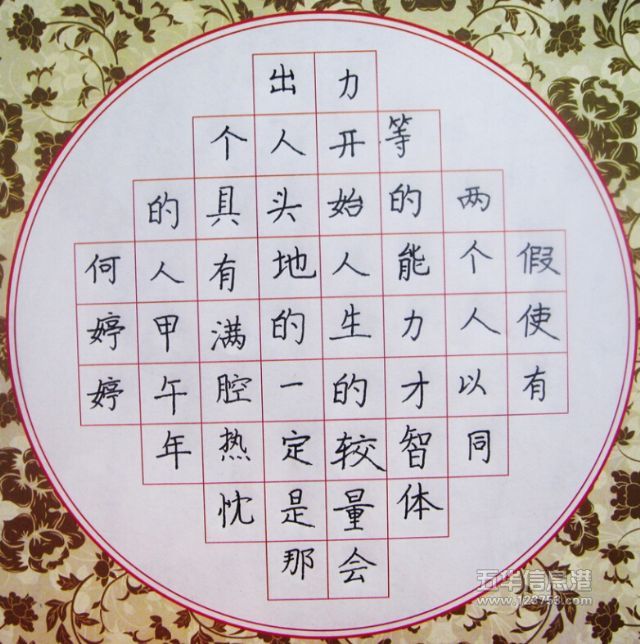 假使有
两个人以同
等的能力才智体
力开始人生的较量会
出人头地的一定是那
个具有满腔热忱
的人甲午年
何婷婷
五华信息港
www.123753.com